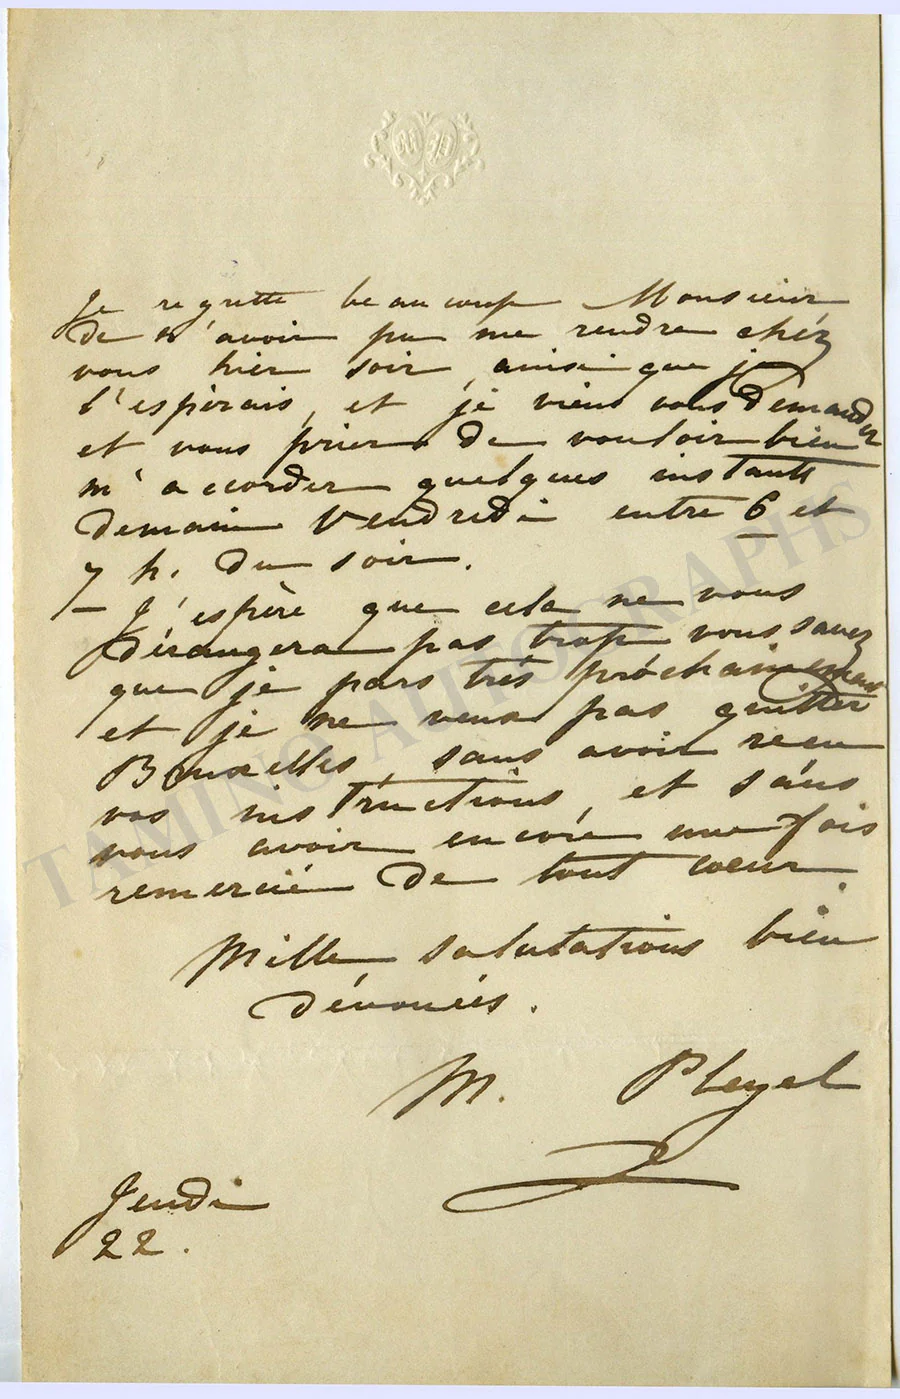 MP
Je regrette beaucoup Monsieur
de n'avoir pu me rendre chéz
vous hier soir, ainsi que je
l'espèrais, et je viens vous demander
et vous prier de vouloir bien
m'accorder quelques instants
demain Vendredi entre 6 et
7 h. du soir.
J'espère que cela ne vous
dérangera pas trop vous savez
que je pars très próchainement
et je ne veux pas quitter
Bruxelles sans avoir reçu
vos instructions, et sans
vous avoir encore une fois
remercié de tout coeur.
Mille salutations bien
dévouées.
M. Pleyel
Jeudi
22.
TAMINO AUTOGRAPHS